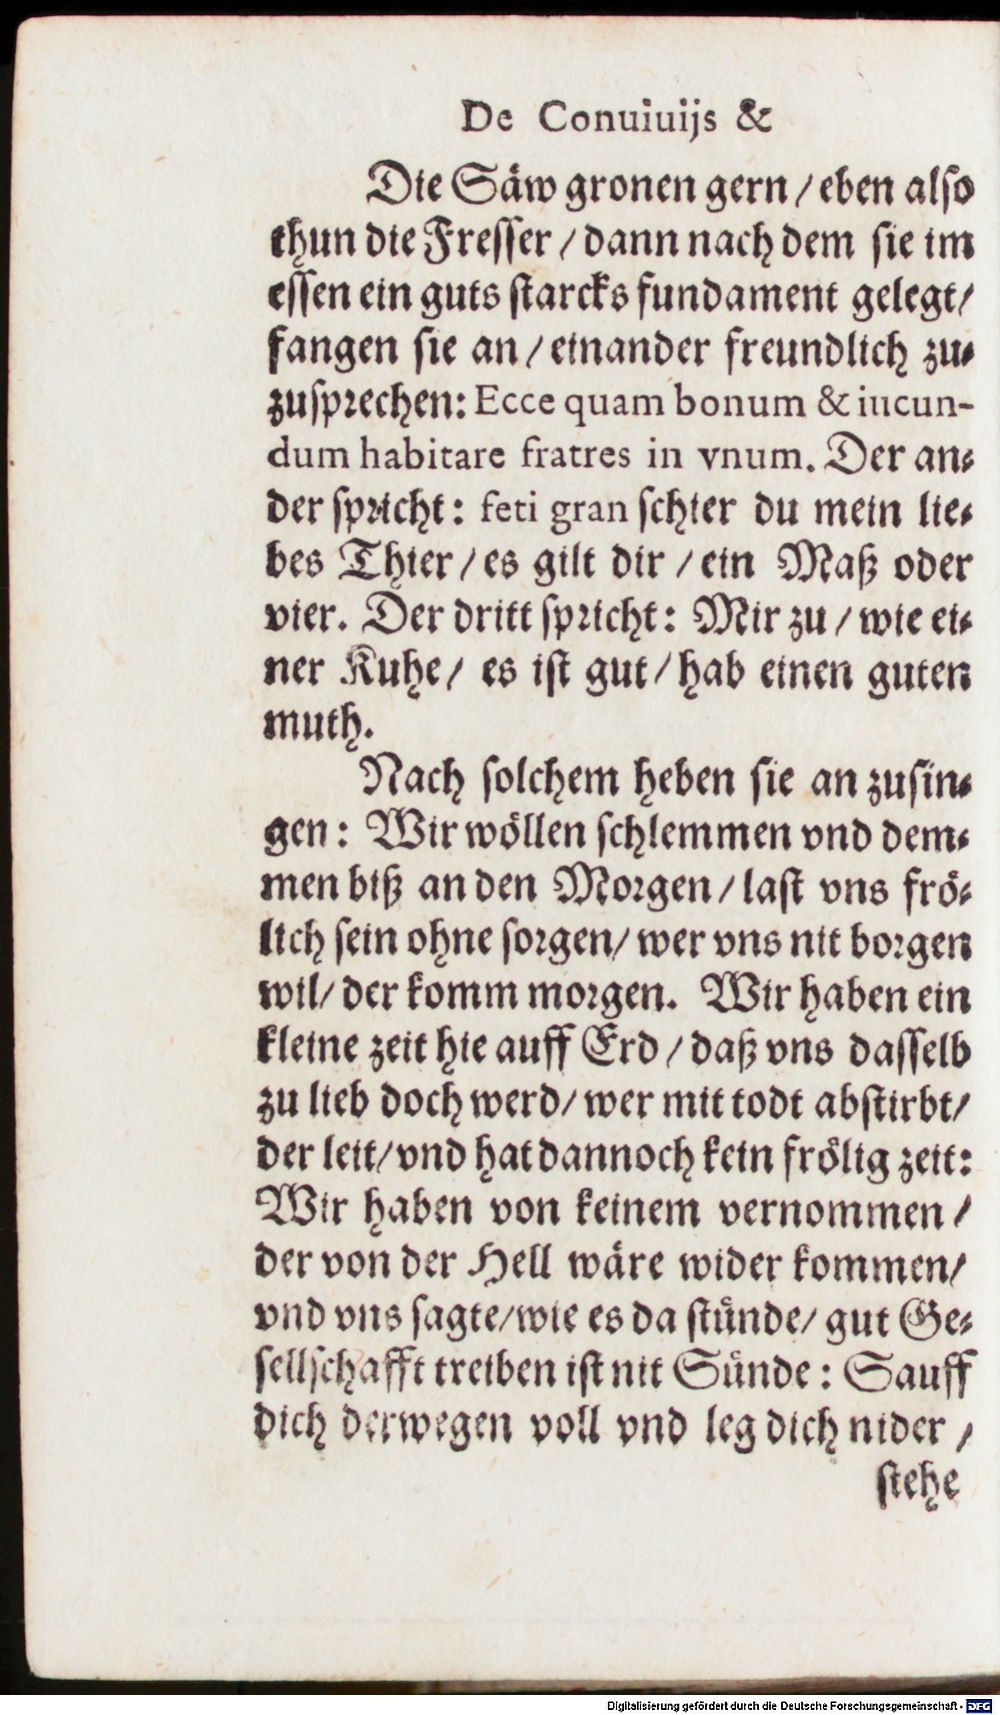 De Conuiuijs &
Die Säw gronen gern / eben also
thun die Fresser / dann nach dem sie im
essen ein guts starcks fundament gelegt/
fangen sie an / einander freundlich zu-
zusprechen: Ecce quam bonum & iucun-
dum habitare fratres in vnum. Der an-
der spricht: feti gran schier du mein lie-
bes Thier / es gilt dir / ein Maß oder
vier. Der dritt spricht: Mir zu / wie ei-
ner Kuhe / es ist gut / hab einen guten
muth.
Nach solchem heben sie an zusin-
gen: Wir wöllen schlemmen vnd dem-
men biß an den Morgen / last vns frö-
lich sein ohne sorgen/ wer vns nit borgen
wil/ der komm morgen. Wir haben ein
kleine zeit hie auff Erd / daß vns dasselb
zu lieb doch werd/ wer mit todt abstirbt/
der leit/ vnd hat dannoch kein frölig zeit:
Wir haben von keinem vernommen /
der von der Hell wäre wider kommen/
vnd vns sagte/wie es da stünde/ gut Ge-
sellschafft treiben ist nit Sünde: Sauff
dich derwegen voll vnd leg dich nider /
stehe
Digitalisierung gefördert durch die Deutsche Forschungsgemeinschaft - DFG